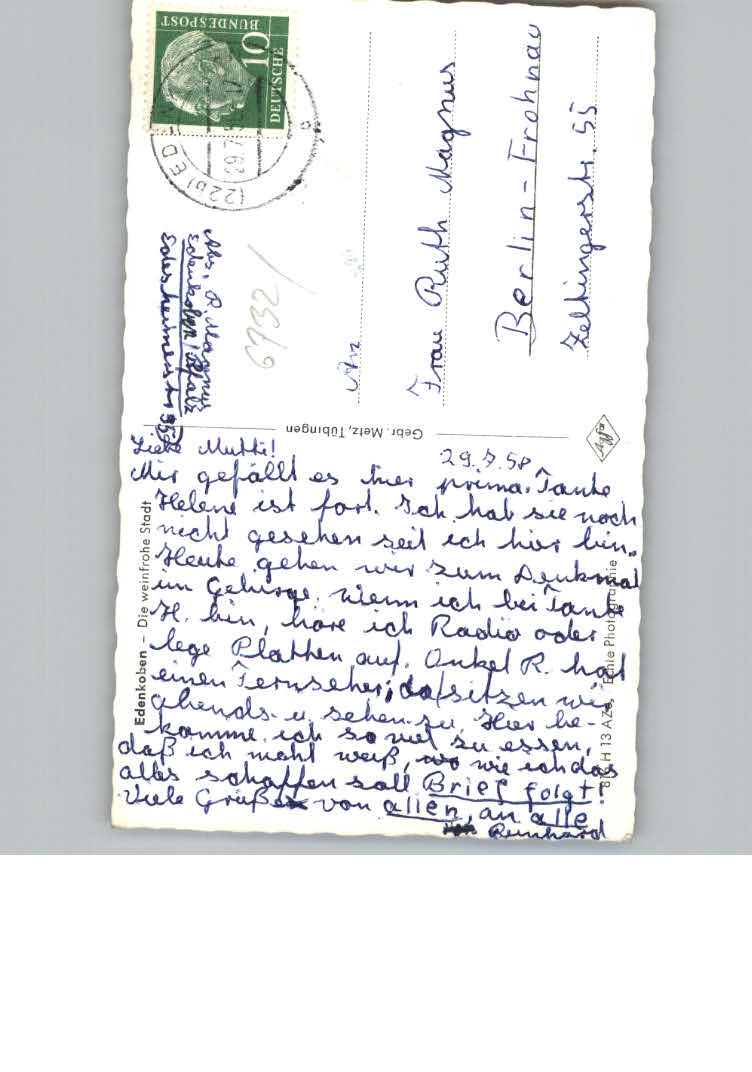 DEUTSCHE
BUNDESPOST
10
(22b) ED
29.7.5
Abs. R. Magnus
Edenkoben / Pfalz
Edesheimerstr.
6732 /
An
Frau Ruth Magnus
Berlin-Frohnau
Zeltingerstr. 55
Gebr. Metz, Tübingen
Agfa
Edenkoben – Die weinfrohe Stadt
H 13 AZ
Echte Photographie
29.7.58
Liebe Mutti!
Mir gefällt es hier prima. Tante
Helene ist fort. Ich hab sie noch
nicht gesehen seit ich hier bin.
Heute gehen wir zum Denkmal
im Gebirge. Wenn ich bei Tante
H. bin, höre ich Radio oder
lege Platten auf. Onkel R. hat
einen Fernseher; da sitzen wir
abends u. sehen zu. Hier be-
komme ich so viel zu essen,
daß ich nicht weiß, wie ich das
alles schaffen soll Brief folgt!
Viele Grüße von allen, an alle
Reinhard